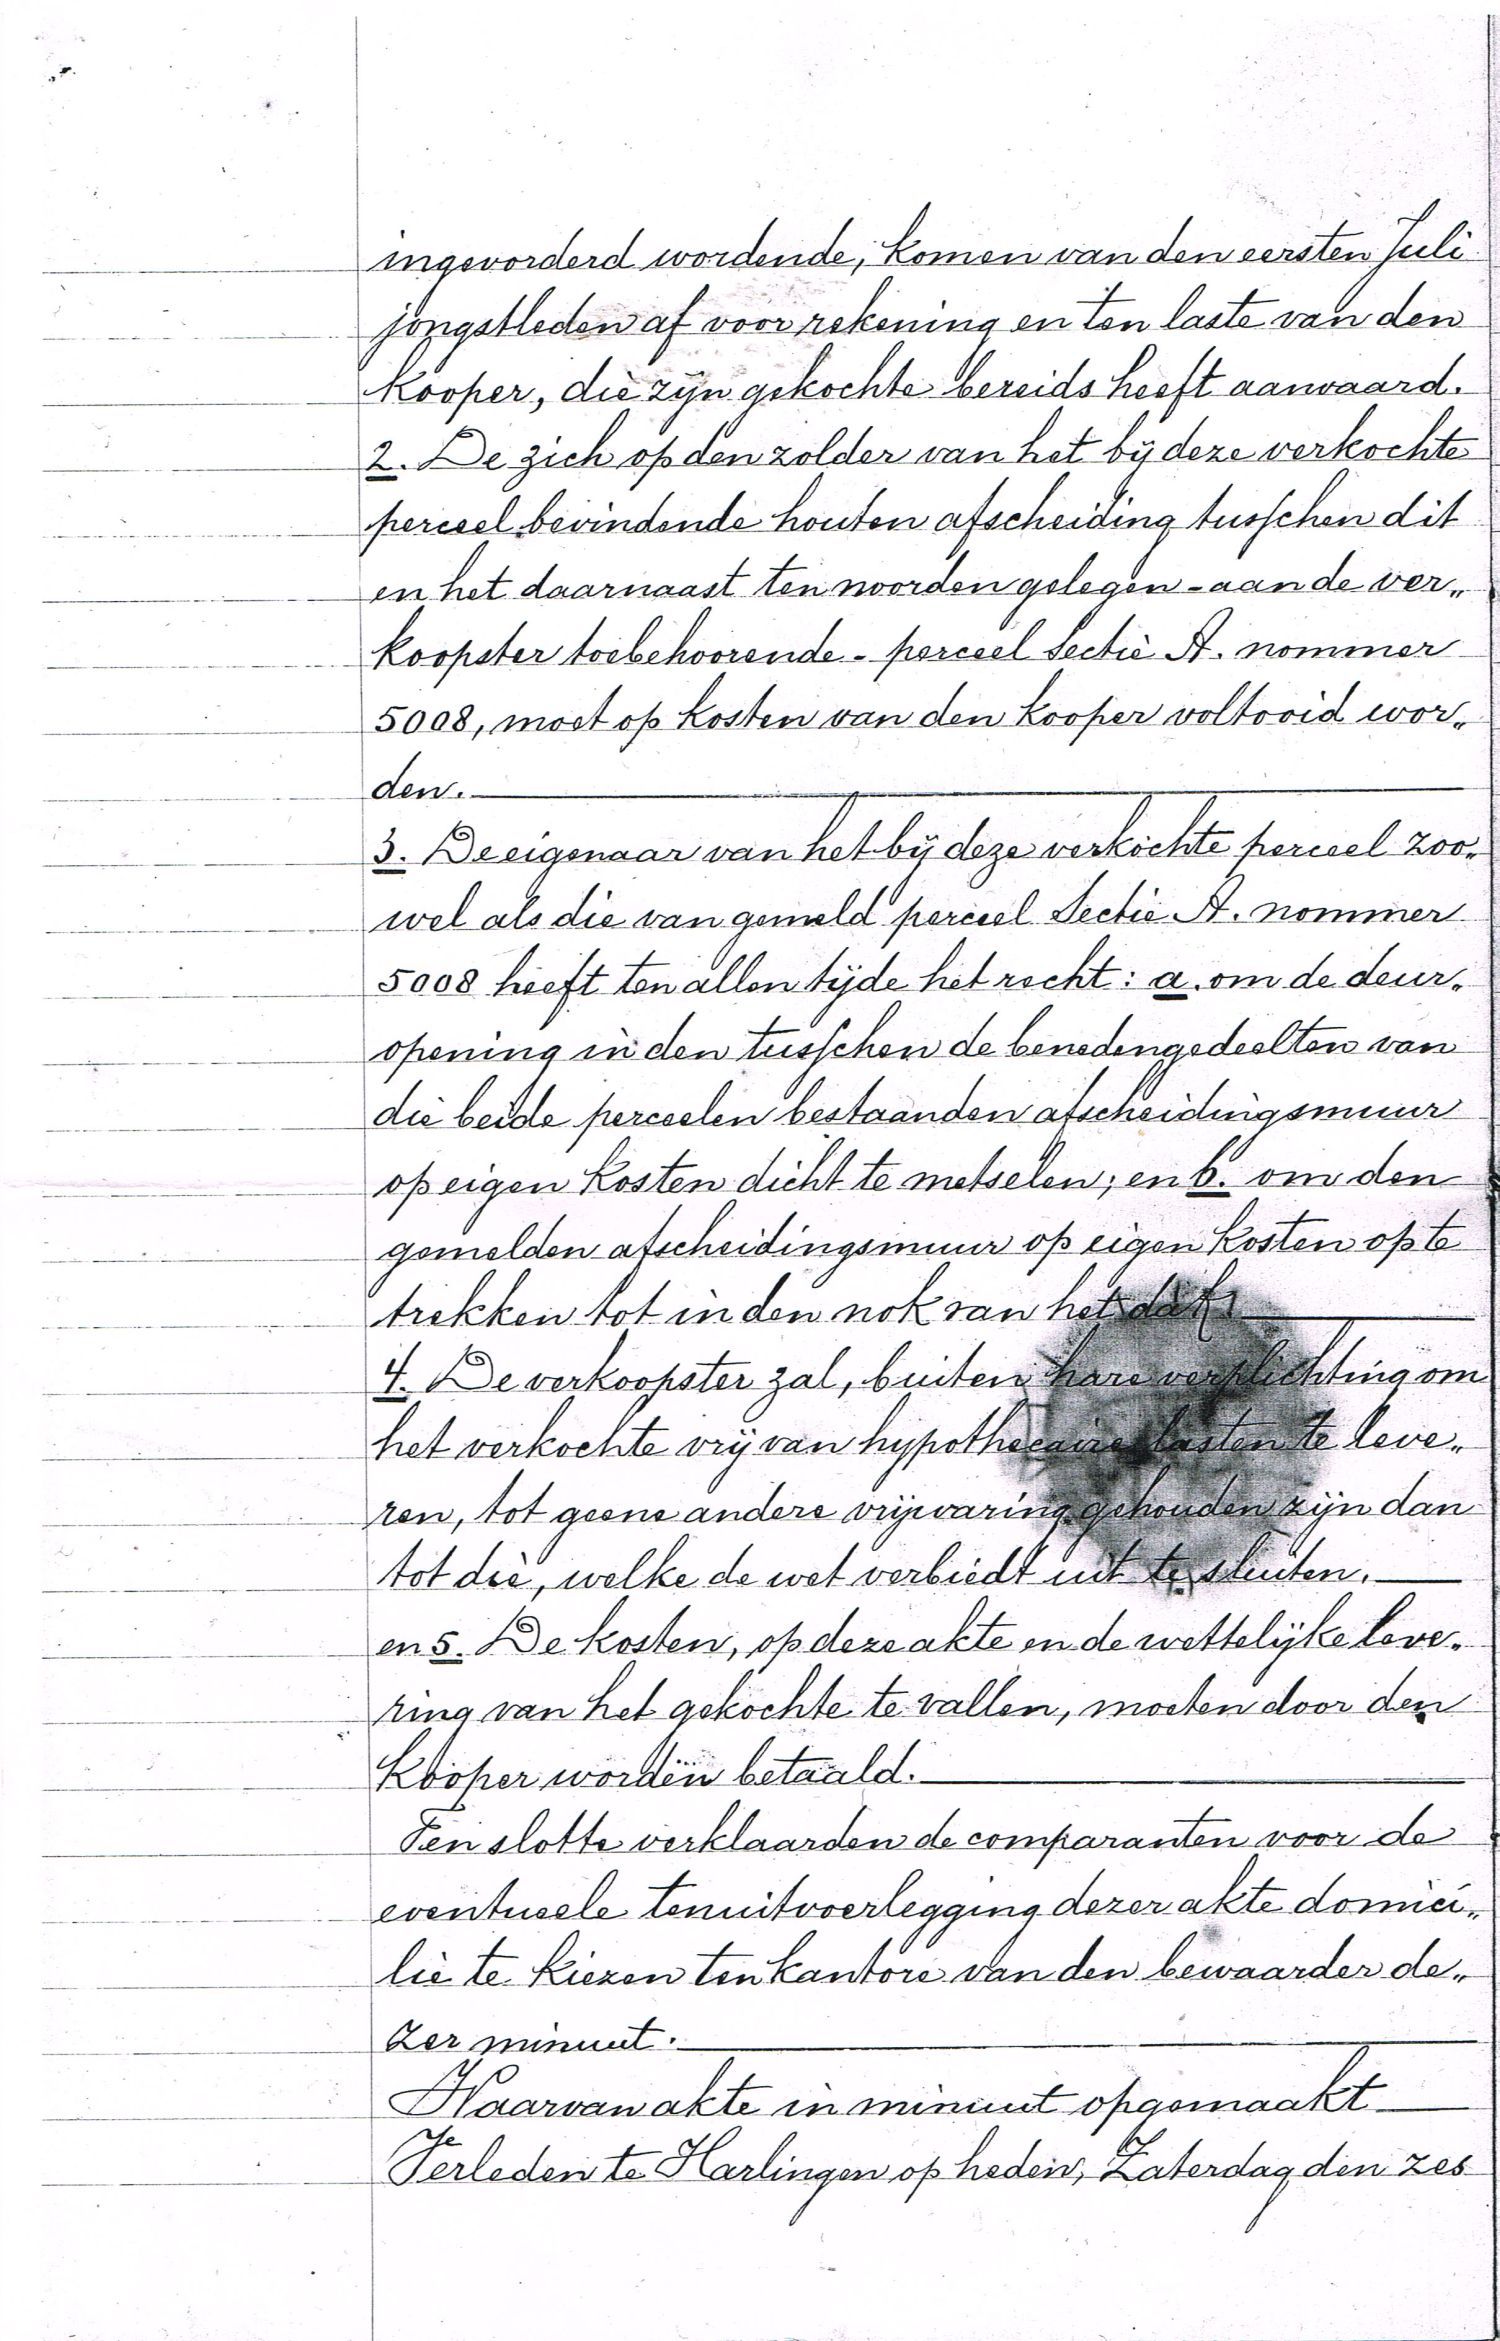 ingevorderd wordende, komen van den eersten Juli
jongstleden af voor rekening en ten laste van den
kooper, die zijn gekochte bereids heeft aanvaard.
2. De zich op den zolder van het bij deze verkochte
perceel bevindende houten afscheiding tusschen dit
en het daarnaast ten noorden gelegen - aan de ver„
koopster toebehoorende - perceel Sectie A. nommer
5008, moet op kosten van den kooper voltooid wor„
den.
3. De eigenaar van het bij deze verkochte perceel zoo„
wel als die van gemeld perceel Sectie A. nommer
5008 heeft ten allen tijde het recht: a. om de deur„
opening in den tusschen de benedengedeelten van
die beide perceelen bestaanden afscheidingsmuur
op eigen kosten dicht te metselen; en b. om den
gemelden afscheidingsmuur op eigen kosten op te
trekken tot in den nok van het dak
4. De verkoopster zal, buiten hare verplichting om
het verkochte vrij van hypothecaire lasten te leve„
ren, tot geene andere vrijwaring gehouden zijn dan
tot die, welke de wet verbiedt uit te sluiten.
en 5. De kosten, op deze akte en de wettelijke leve„
ring van het gekochte te vallen, moeten door den
kooper worden betaald.
Ten slotte verklaarden de comparanten voor de
eventueele tenuitvoerlegging dezer akte domici„
lie te kiezen ten kantore van den bewaarder de„
zer minuut.
Waarvan akte in minuut opgemaakt
Verleden te Harlingen op heden, Zaterdag den zes